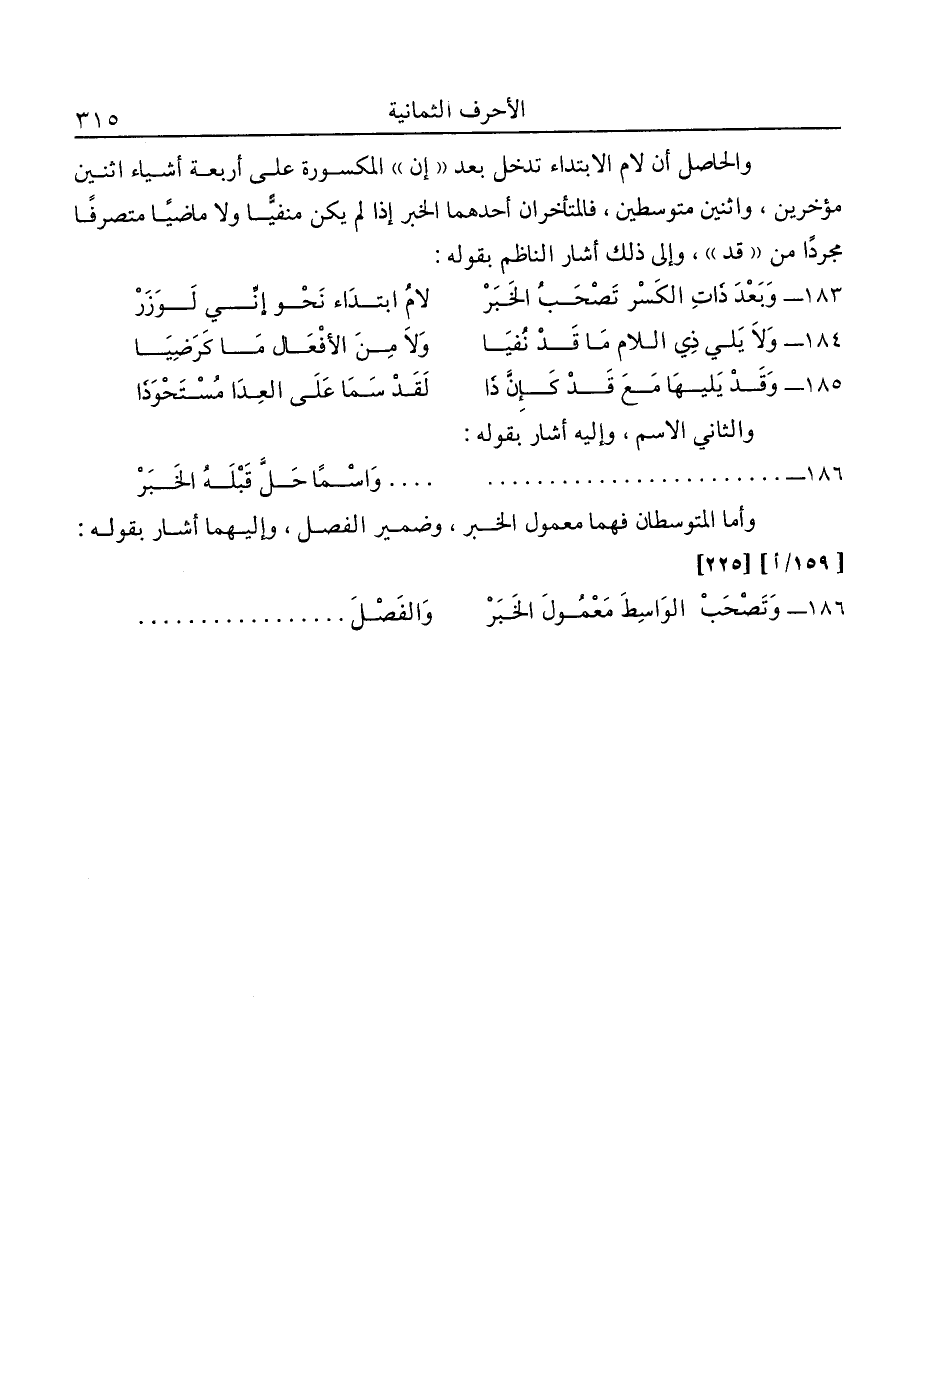 الأحرف الثمانية ٣١٥
والحاصل أن لام الابتداء تدخل بعد (( إن )) المكسورة على أربعة أشياء اثنين
مؤخرين ، واثنين متوسطين ، فالمتأخران أحدهما الخبر إذا لم يكن منفيًّا ولا ماضيًا متصرفًا
مجردًا من (( قد )) ، وإلى ذلك أشار الناظم بقوله :
١٨٣ــ وَبَعْدَ ذَاتِ الكَسْرِ تَصْحَبُ الخَبَرْ لامُ ابتدَاء نَحْو إنِّي لَوَزَرْ
١٨٤ــ وَلاَ يَلي ذِي اللام مَا قَدْ نُفيَا وَلاَ مِنَ الأفْعَال مَا كَرَضِيَا
١٨٥ــ وَقَدْ يَليهَا مَعَ قَدْ كَإِنَّ ذَا لَقَدْ سَمَا عَلَى العِدَا مُسْتَحْوَذَا
والثاني الاسم ، وإليه أشار بقوله :
١٨٦ــ ........................ .... وَاسْمًا حَلَّ قَبْلَهُ الخَبَرْ
وأما المتوسطان فهما معمول الخبر ، وضمير الفصل ، وإليهما أشار بقوله :
[ ١٥٩/أ ] [٢٢٥]
١٨٦ــ وَتَصْحَبْ الوَاسِطَ مَعْمُولَ الخَبَرْ وَالفَصْلَ .................